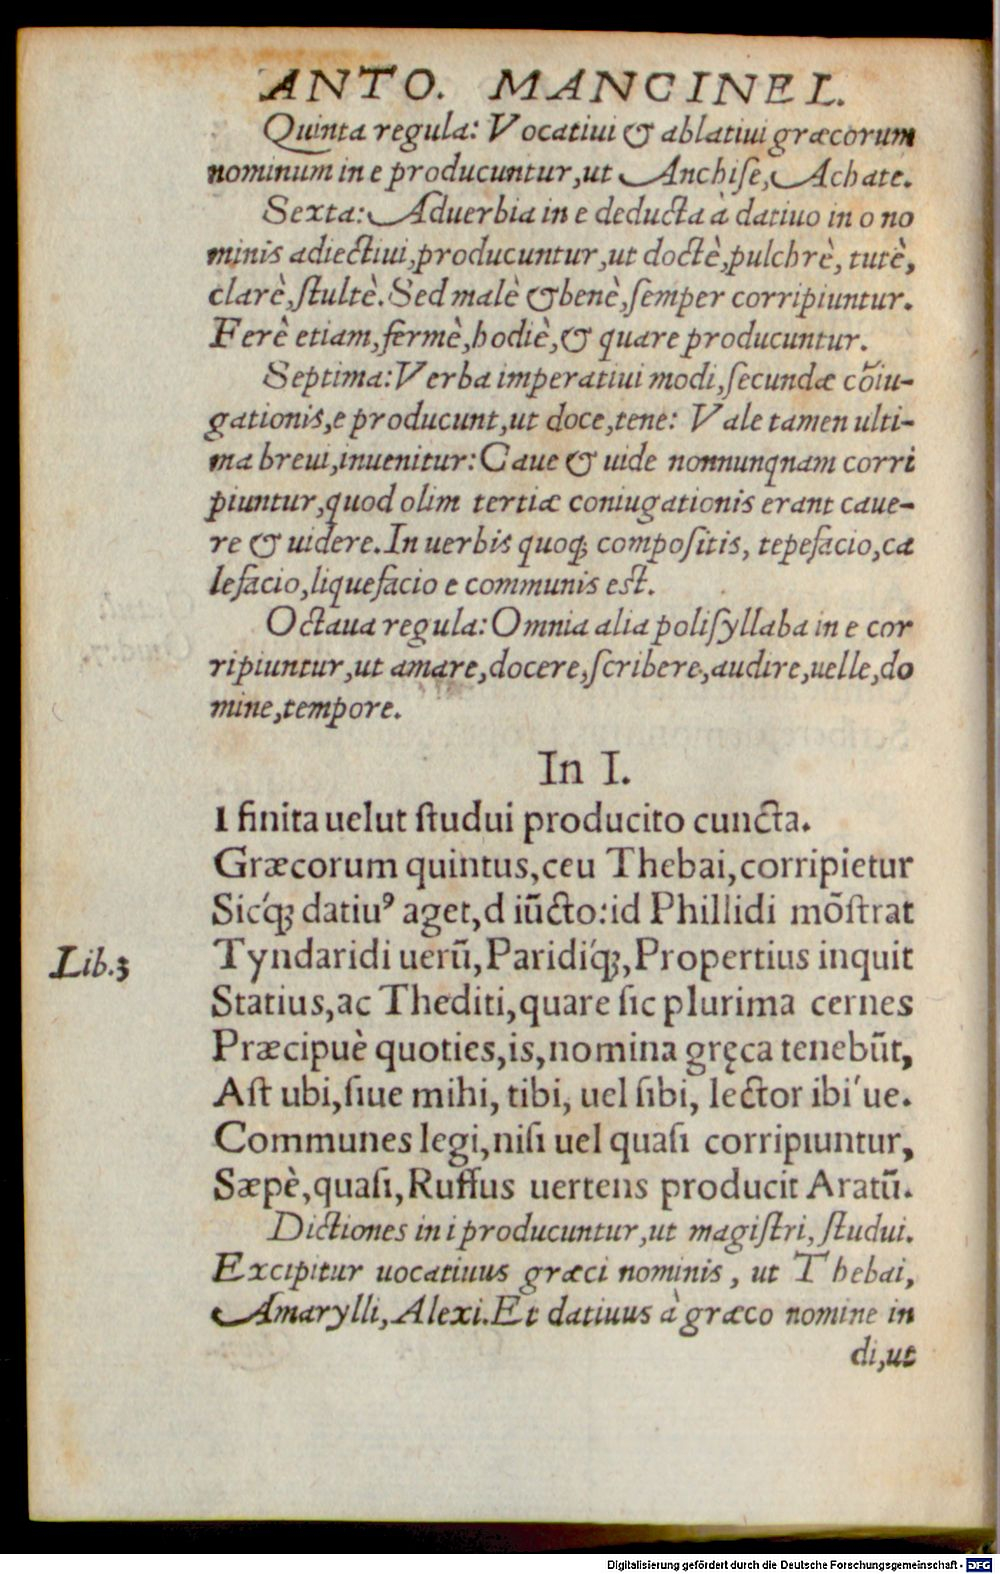 ANTO. MANCINEL.
Quinta regula: Vocatiui & ablatiui græcorum
nominum in e producuntur, ut Anchiſe, Achate.
Sexta: Aduerbia in e deducta à datiuo in o no
minis adiectiui, producuntur, ut doctè, pulchrè, tutè,
clarè, ſtultè. Sed malè & benè, ſemper corripiuntur.
Ferè etiam, fermè, hodiè, & quare producuntur.
Septima: Verba imperatiui modi, ſecundæ cõiu-
gationis, e producunt, ut doce, tene: Vale tamen ulti-
ma breui, inuenitur: Caue & uide nonnunqnam corri
piuntur, quod olim tertiæ coniugationis erant caue-
re & uidere. In uerbis quoq; compoſitis, tepefacio, ca
lefacio, liquefacio e communis eſt.
Octaua regula: Omnia alia poliſyllaba in e cor
ripiuntur, ut amare, docere, ſcribere, audire, uelle, do
mine, tempore.
In I.
I finita uelut ſtudui producito cuncta.
Græcorum quintus, ceu Thebai, corripietur
Sic'q; datiuꝰ aget, d iũcto: id Phillidi mõſtrat
Lib.3 Tyndaridi uerũ, Paridi'q;, Propertius inquit
Statius, ac Thediti, quare ſic plurima cernes
Præcipuè quoties, is, nomina gręca tenebũt,
Aſt ubi, ſiue mihi, tibi, uel ſibi, lector ibi'ue.
Communes legi, niſi uel quaſi corripiuntur,
Sæpè, quaſi, Ruffus uertens producit Aratũ.
Dictiones in i producuntur, ut magiſtri, ſtudui.
Excipitur uocatiuus græci nominis, ut Thebai,
Amarylli, Alexi. Et datiuus à græco nomine in
di, ut
Digitalisierung gefördert durch die Deutsche Forschungsgemeinschaft - DFG